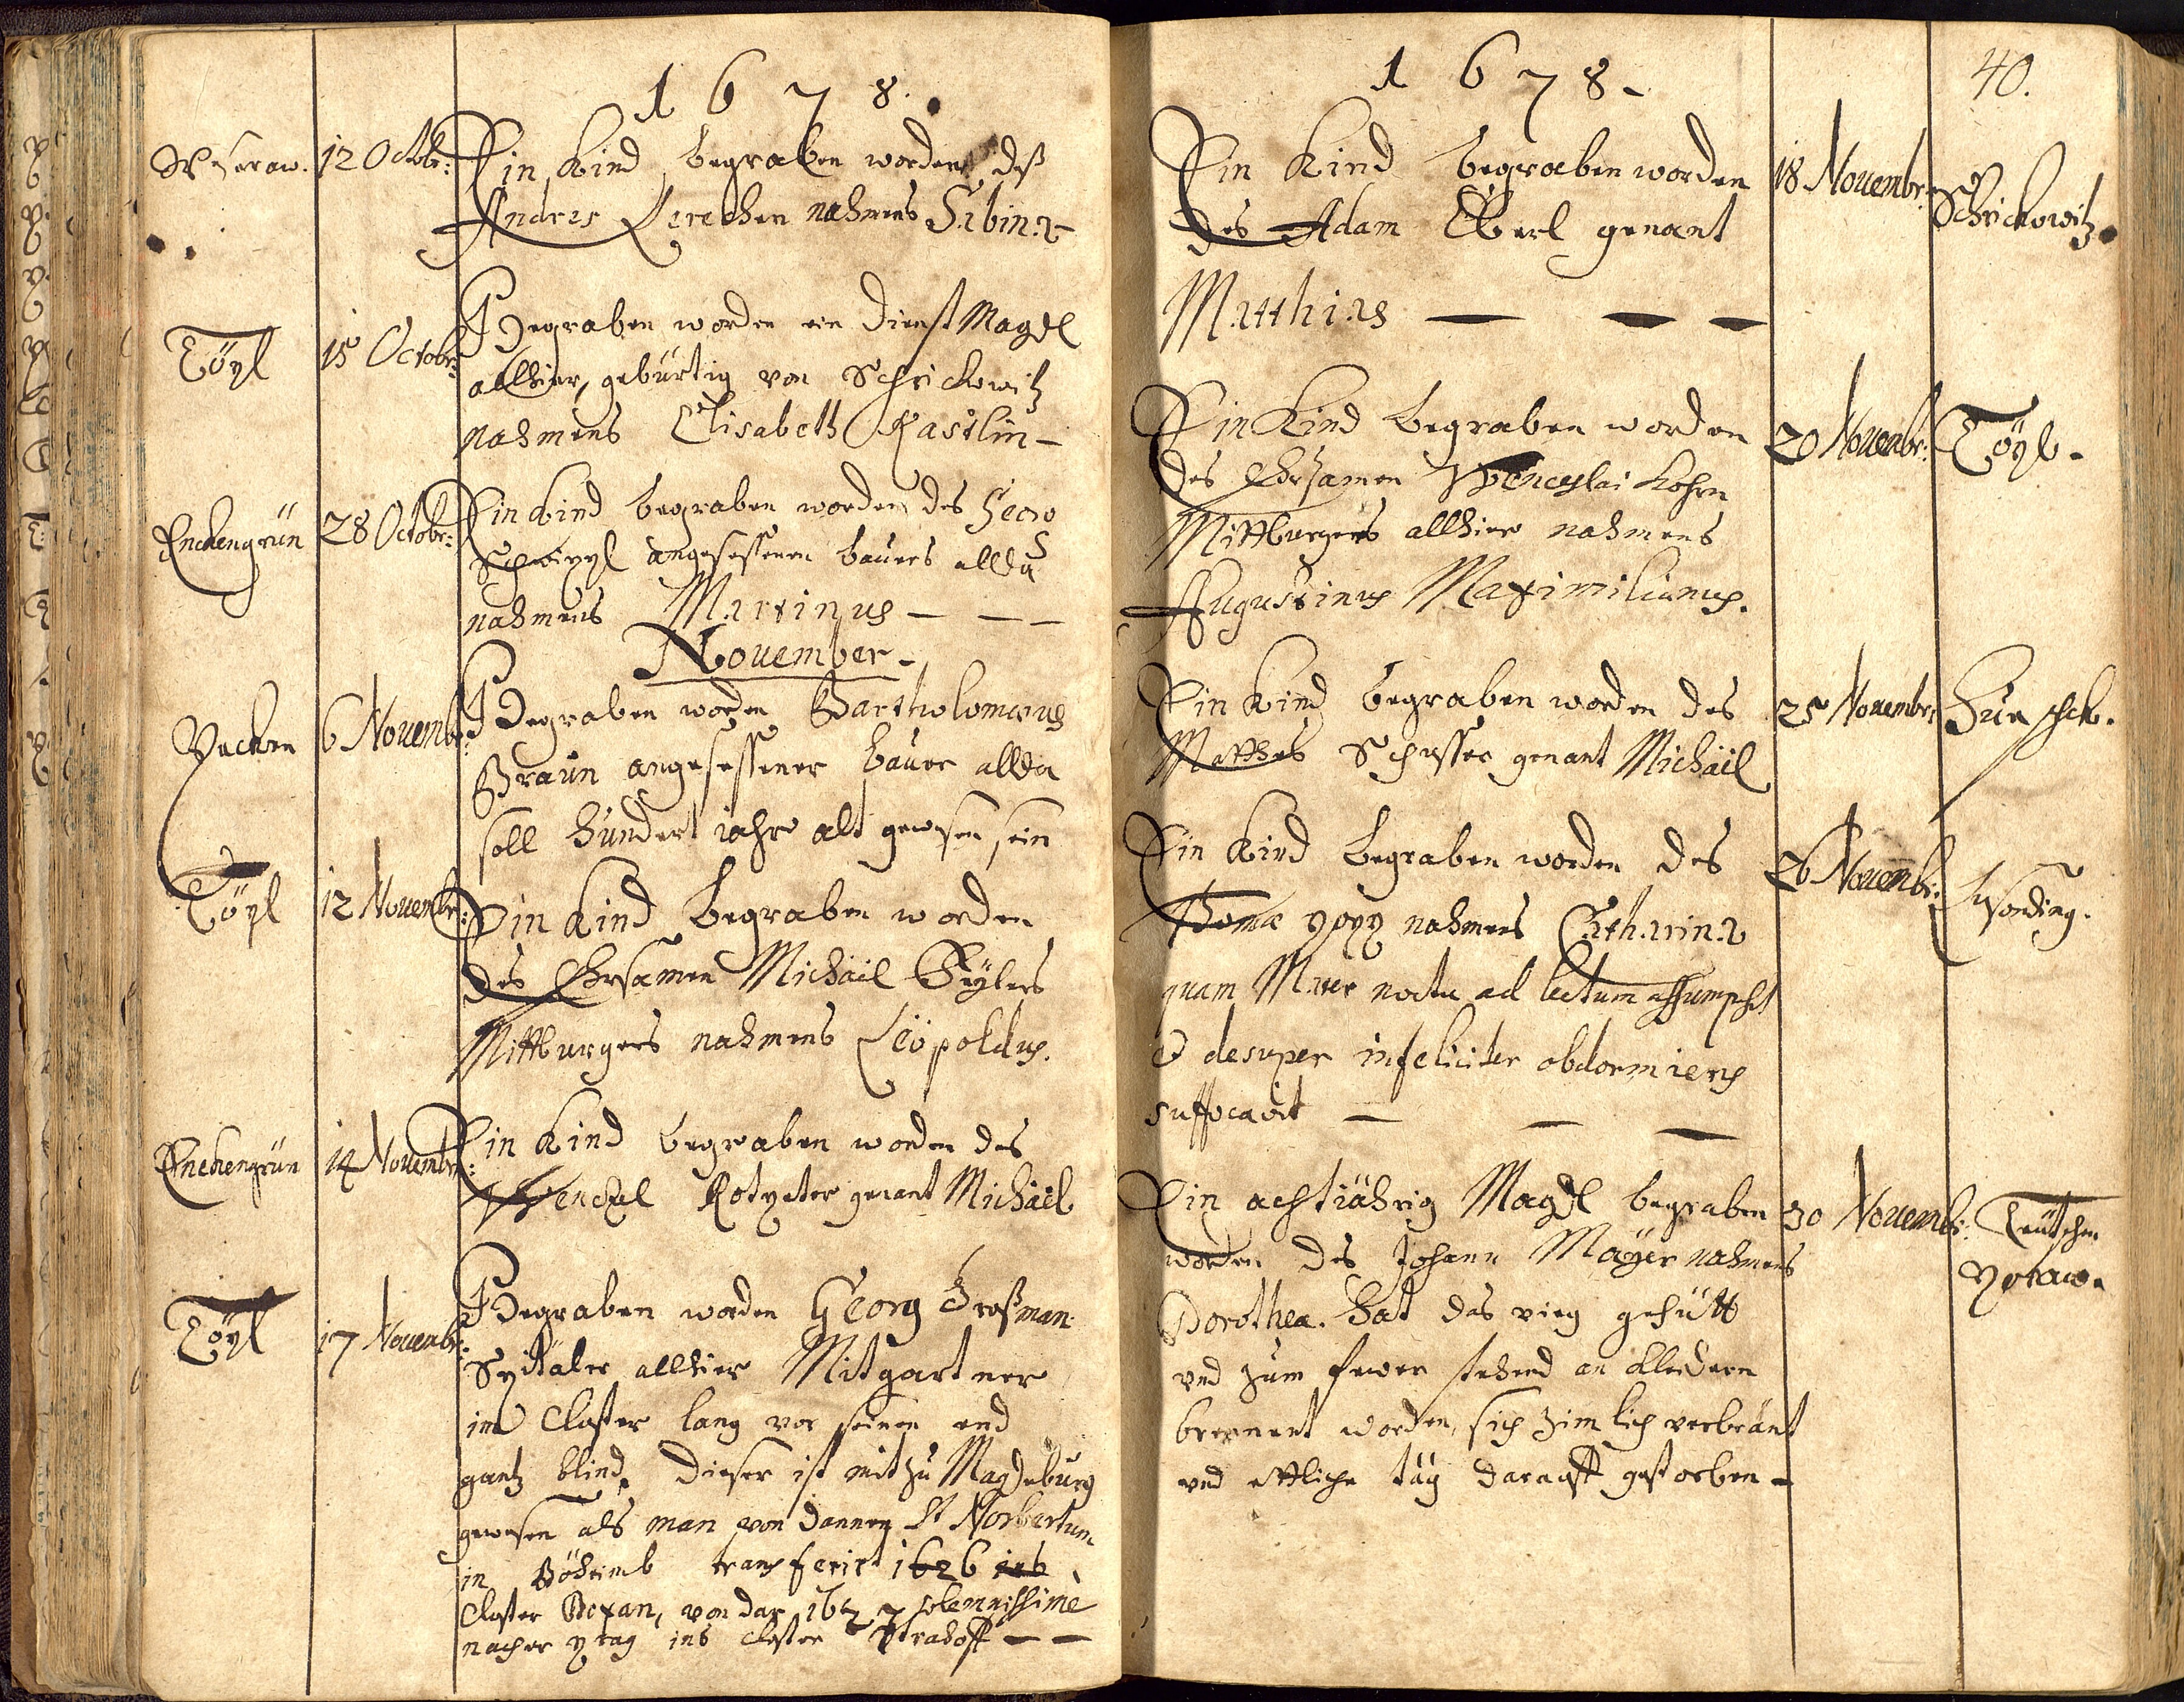 1678.
12 Octobr: Ein Kind begraben worden deß
Andres Lerechen nahmens Sabina
Töyl 15 Octobr: Begraben worden ein Dienst Magdl
allhier, gebürtig von Schrickowitz
nahmens Elisabeth Kastlin —
Enckengrün 28 Octobr: Ein Kind begraben worden des Georg
angesessenen bauers allda
nahmens Martinus — — —
November —
6 Novembr: Begraben worden Bartholomæus
Braün angesessener bauer allda
soll hundert iahr alt gewesen sein
Töyl 12 Novembr: Ein Kind begraben worden
des Ehrsamen Michäel Beÿlers
Mittburgers nahmens Leopoldus.
Enckengrün 14 Novembr: Ein Kind begraben worden des
Wenczel genant Michäel
Töyl 17 Novembr: Begraben worden Georg Großman
Spitäler allhier Mitgartner
im Closter lang vor seinen end
gantz blind. Dieser ist mit zu Magdeburg
gewesen als man von dannen St Norbertum
in Böheimb transferirt 1626 ins
Closter Doxan, von dar 1627 solemnissimè
nacher prag ins closter Strahoff — —
1678 —
40.
Ein Kind begraben worden 18 Novembr: Schrickowitz
des Adam Eberl genant
Matthias — — —
Ein Kind begraben worden 20 Novembr: Töyl.
des Ehrsamen Wenceslai Kohrn
Mittburgers allhier nahmens
Augustinus Maximilianus.
Ein Kind begraben worden des 25 Novembr:
Matthes Schusser genant Michäel
Ein Kind begraben worden des 26 Novembr:
Thomæ popp nahmens Catharina
quam Mater noctu ad lectum assumpsit
& desuper infeliciter obdormiens
suffocavit — — —
Ein achtiährig Magdl begraben 30 Novembr: Teütschen
worden des Johann Maÿer nahmens
Dorothea. hat das vieg gehütt
und zum fewer stehend an kleidern
brennent worden, sich zimlich verbränt
und ettliche täg darauff gestorben —